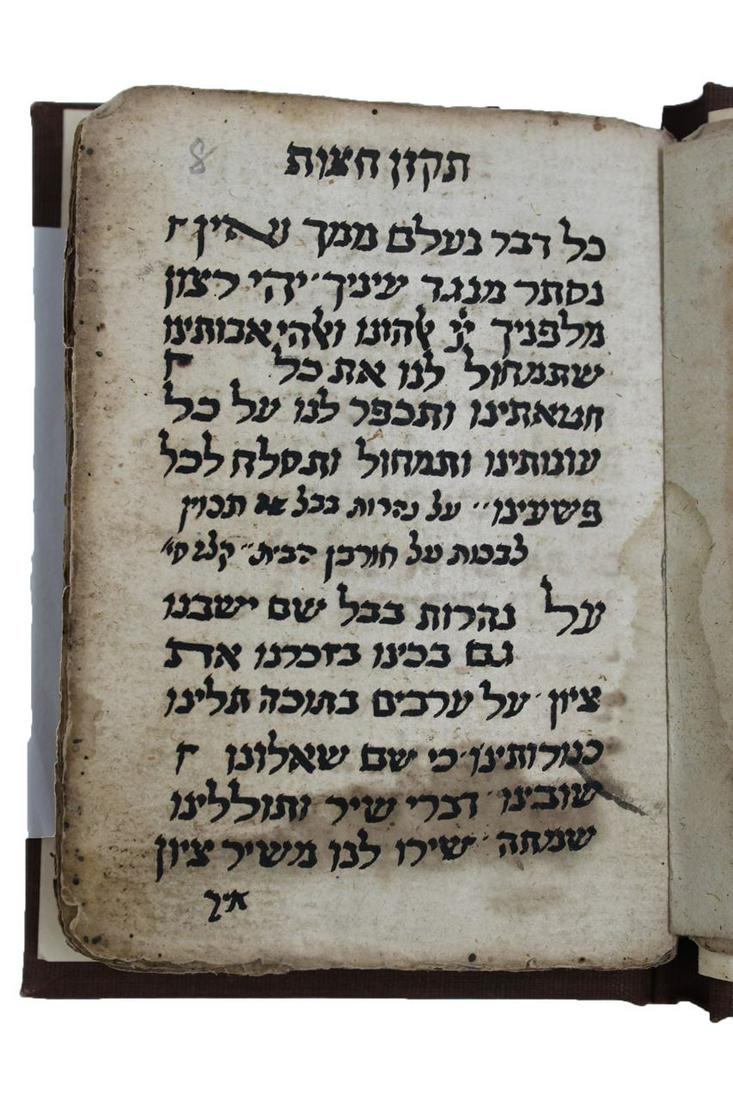 8
תקון חצות
כל דבר נעלם ממך ואין
נסתר מנגד עיניך יהי רצון
מלפניך ייי אלהינו ואלהי אבותינו
שתמחול לנו את כל
חטאתינו ותכפר לנו על כל
עונותינו ותמחול ותסלח לכל
פשעינו׳׳ על נהרות בבל תכוין
לבכות על חורבן הבית׳׳
על נהרות בבל שם ישבנו
גם בכינו בזכרנו את
ציון׳ על ערבים בתוכה תלינו
כנורותינו׳ כי שם שאלונו
שובינו׳ דברי שיר ותוללינו
שמחה׳ שירו לנו משיר ציון
איך